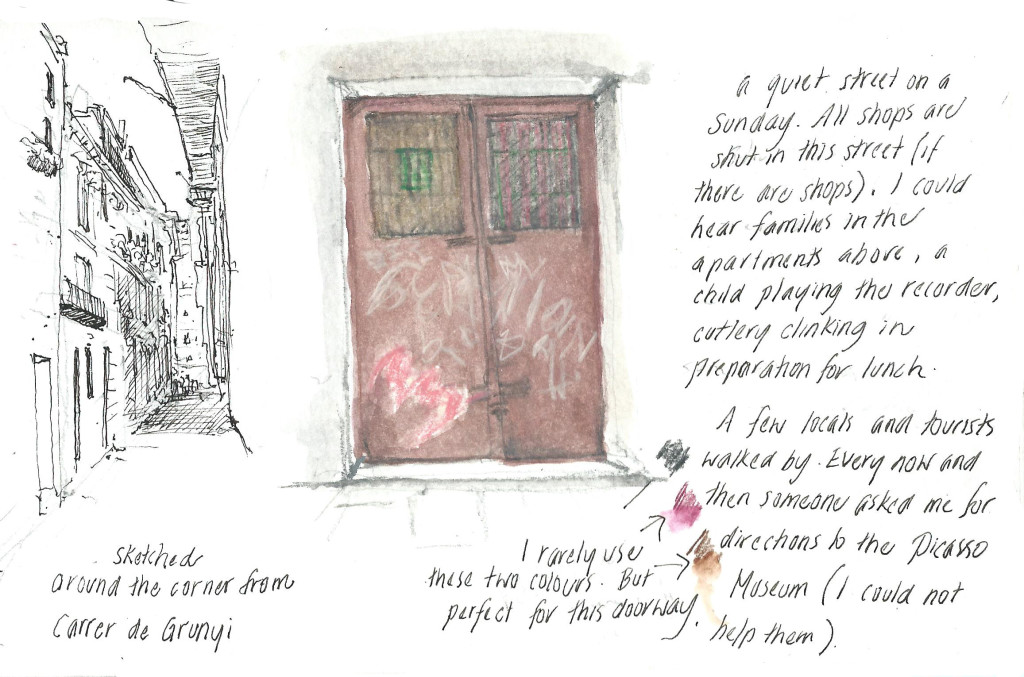 a quiet street on a
Sunday. All shops are
shut in this street (if
there are shops). I could
hear families in the
apartments above, a
child playing the recorder,
cutlery clinking in
preparation for lunch.
A few locals and tourists
walked by. Every now and
then someone asked me for
directions to the Picasso
Museum (I could not
help them).
I rarely use
these two colours. But
perfect for this doorway.
sketched
around the corner from
Carrer de Grunyi